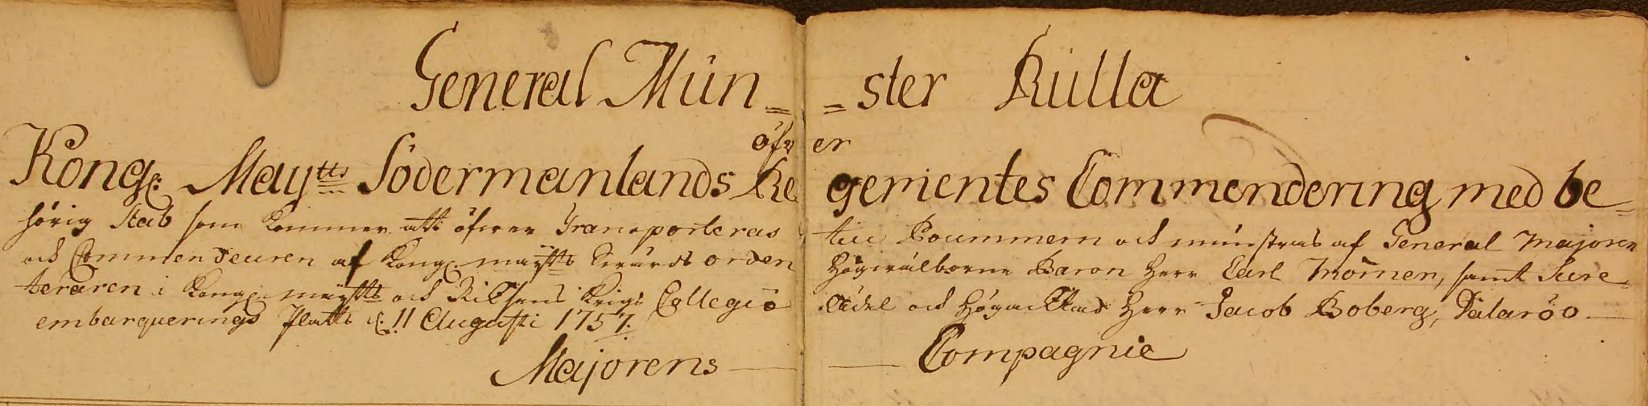 General Mün= =ster Rulla
öfv er
Kong: May:tts Södermanlands Re gementes Commendering med be=
hörig Stab som kommer att öfwer Transporteras till Poummern och munstras af General Majoren
och Commendeuren af Kong: maij:tts Swärds orden Högwälborne Baron Herr Carl Mörner, samt Secre=
teraren i Kong: maij:tts och Riksens Krigs Collegio Ädel och Högacktad Herr Jacob Boberg, Dalarö o
embarquerings Platts d: 11 Augusti 1757.
Majorens — — Compagnie